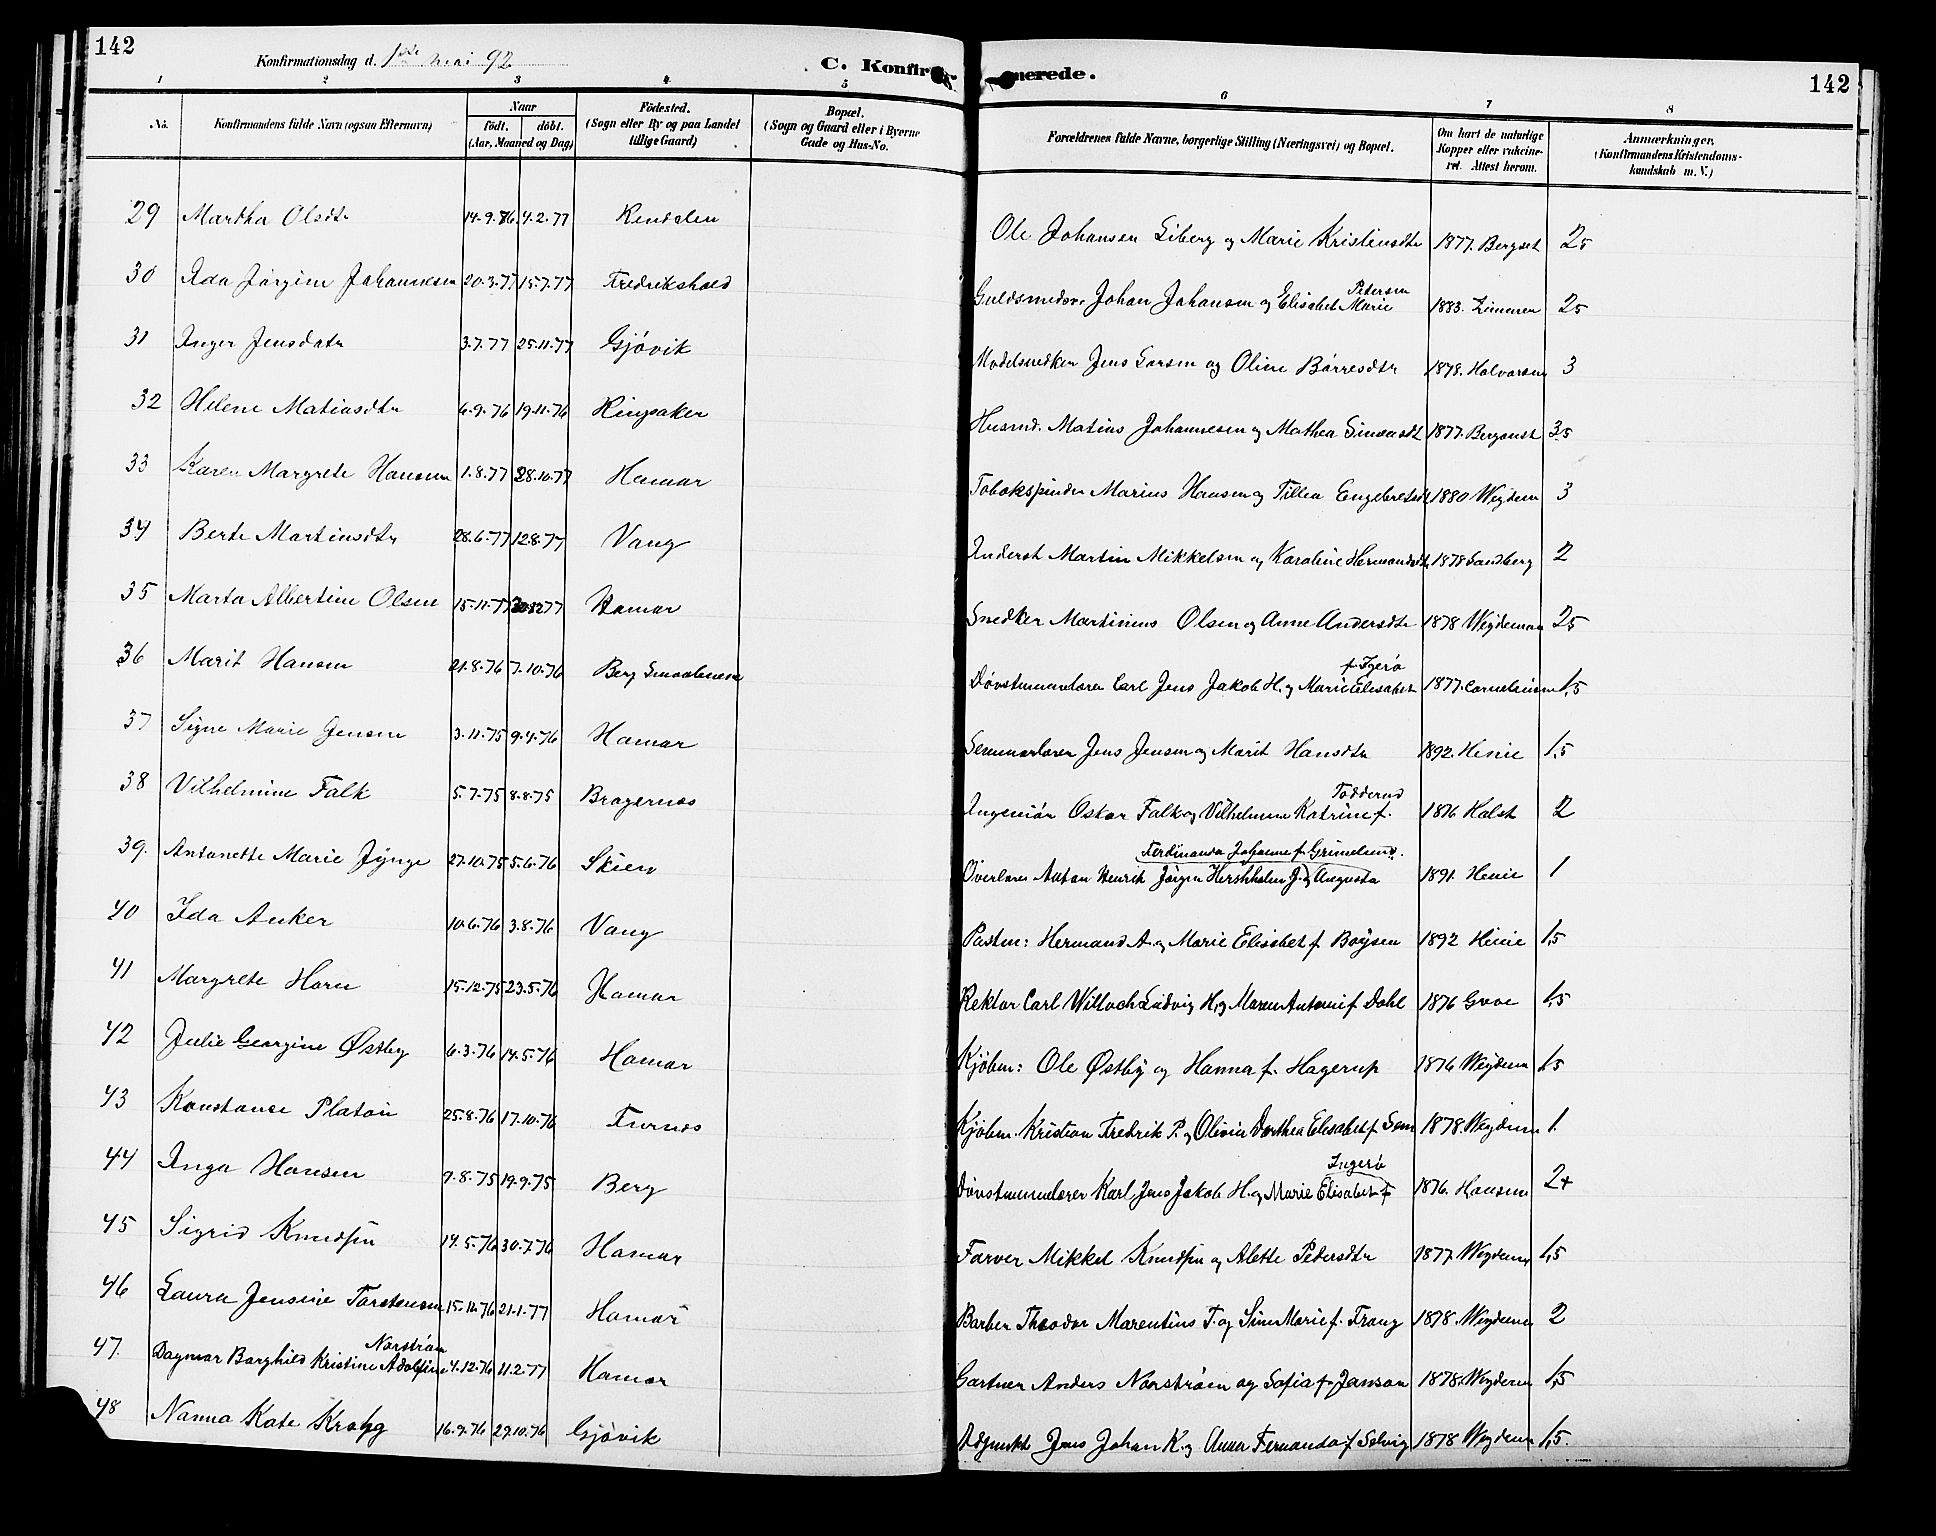 142
Konfirmationsdag d. 1ste mai 92
C. Konfirmerede.
142
1 2 3 4 5 6 7 8
No.
Konfirmandens fulde Navn (ogsaa Efternavn)
Naar födt. döbt. (Aar, Maaned og Dag)
Födested. (Sogn eller By og paa Landet tillige Gaard)
Bopæl. (Sogn og Gaard eller i Byerne Gade og Hus-No.
Forældrenes fulde Navne, borgerlige Stilling (Næringsvei) og Bopæl.
Om havt de naturlige Kopper eller vakcineret. Attest herom.
Anmærkninger. (Konfirmandens Kristendomskundskab m. V.)
29 Martha Olsdtr 14.9.76 4.2.77 Rendalen Ole Johansen Siberg og Marie Kristinsdtr 1877. Bergset 2,5
30 Ida Jørgine Johannesen 20.3.77 15.7.77 Fredrikshald Guldsmedsv. Johan Johansen og Elisabet Marie Petersen 1883. Zimmen 2,5
31 Inger Jensdatr 3.7.77 25.11.77 Gjövik Modelsnedker Jens Larsen og Oline Börresdtr 1878. Halvorsen 3
32 Helene Matiasdtr 6.9.76 19.11.76 Ringsaker Husmd. Matias Johannesen og Mathea Simensdt 1877. Bergquist 3,5
33 Karen Margrete Hansen 1.8.77 28.10.77 Hamar Tobakspinder Marius Hansen og Tillea Engebretsdt 1880 Weydem 3
34 Berte Martinsdtr 28.6.77 12.8.77 Vang Inderst Martin Mikkelsen og Karoline Hermansdtr 1878 Sandberg 2
35 Marta Albertine Olsen 15.11.77 30.12.77 Hamar Snedker Martinius Olsen og Anne Andersdtr 1878 Weydeman 2,5
36 Marit Hansen 21.8.76 7.10.76 Berg Smaalenene Døvstummelærer Carl Jens Jakob H. og Marie Elisabet f. Igerö 1877. Corneliusen 1,5
37 Signe Marie Jensen 3.11.75 9.4.76 Hamar Seminarlærer Jens Jensen og Marit Hansdtr 1892. Henie 1,5
38 Vilhelmine Falk 5.7.75 8.8.75 Bragernes Ingeniör Oskar Falk og Vilhelmine Katrine f. Tødderud 1876 Holst 2
39. Antonette Marie Jynge 27.10.75 5.6.76 Skien Overlærer Anton Henrik Jörgen Hershholm J. og Augusta Ferdinanda Johanne f. Grimelund. 1891. Henie 1
40 Ida Anker 10.6.76 3.8.76 Vang Pastor: Hermand A. og Marie Elisabet f. Boysen 1892 Henie 1,5
41 Margrete Horn 15.12.75 23.5.76 Hamar Rektor Carl Willoch Ludvig H. og Maren Antonie f. Dahl 1876 Grøe 1,5
42 Julie Georgine Østby 6.3.76 14.5.76 Hamar Kjöbm: Ole Østby og Hanna f. Hagerup 1876 Weydem 1,5
43 Konstance Platou 25.8.76 17.10.76 Furnes Kjöbm. Kristian Fredrik P. og Olivia Dorthea Elisabet f. Sem 1878. Weydem 1.
44 Inga Hansen 9.8.75 19.9.75 Berg Døvstummelærer Karl Jens Jakob H. og Marie Elisabet f. Ingerö 1876. Hansen 2+
45 Sigrid Knudsen 14.5.76 30.7.76 Hamar Farver Mikkel Knudsen og Alette Pedersdtr 1877. Weydem 1,5
46 Laura Jensine Torstensen 15.12.76 21.1.77 Hamar Barber Theodor Marentius T. og Sine Marie f. Frang 1878. Weydem 2
47. Dagmar Borghild Kristine Adolfine Norström 4.12.76 11.2.77 Hamar Gartner Anders Norström og Sofia f. Janson 1878. Weydem 1,5
48 Nanna Kate Krohg 16.9.76 29.10.76 Gjövik Adjunkt Jens Johan K. og Anna Fernanda f. Selvig 1878 Weydem 1,5.